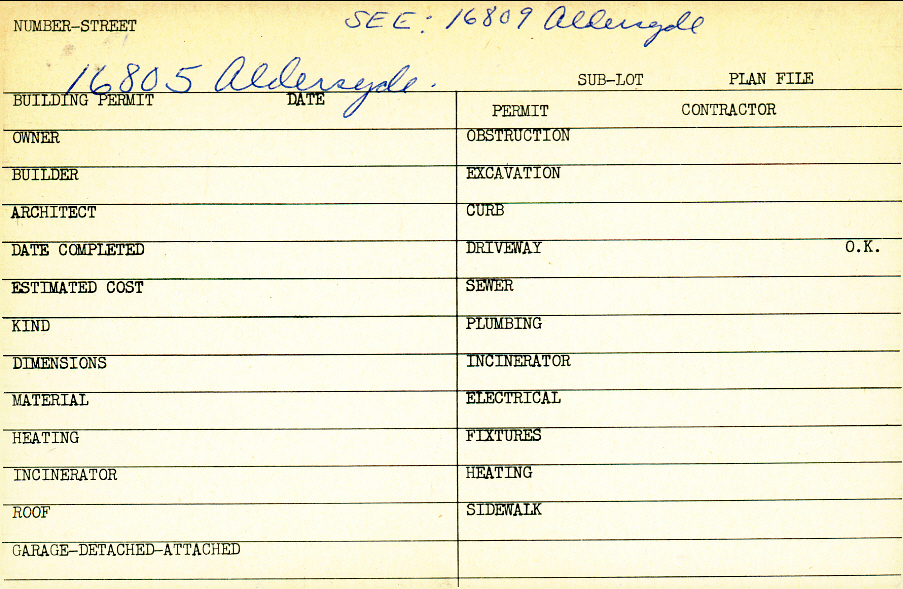 NUMBER-STREET SEE: 16809 Aldersyde
16805 Aldersyde. SUB-LOT PLAN FILE
BUILDING PERMIT DATE PERMIT CONTRACTOR
OWNER OBSTRUCTION
BUILDER EXCAVATION
ARCHITECT CURB
DATE COMPLETED DRIVEWAY O.K.
ESTIMATED COST SEWER
KIND PLUMBING
DIMENSIONS INCINERATOR
MATERIAL ELECTRICAL
HEATING FIXTURES
INCINERATOR HEATING
ROOF SIDEWALK
GARAGE-DETACHED-ATTACHED